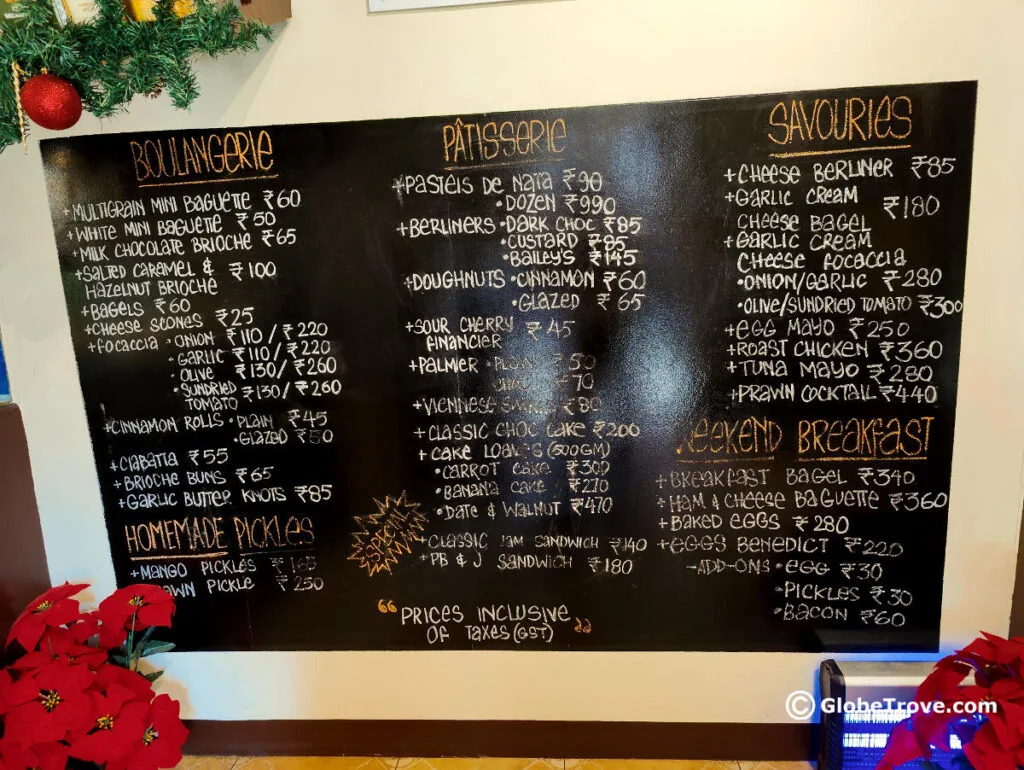 BOULANGERIE
+MULTIGRAIN MINI BAGUETTE ₹60
+WHITE MINI BAGUETTE ₹50
+MILK CHOCOLATE BRIOCHE ₹65
+SALTED CARAMEL & ₹100
HAZELNUT BRIOCHE
+BAGELS ₹60
+CHEESE SCONES ₹25
+FOCACCIA •ONION ₹110/₹220
•GARLIC ₹110/₹220
•OLIVE ₹130/₹260
•SUNDRIED ₹130/₹260
TOMATO
+CINNAMON ROLLS •PLAIN ₹45
•GLAZED ₹50
+CIABATTA ₹55
+BRIOCHE BUNS ₹65
+GARLIC BUTTER KNOTS ₹85
HOMEMADE PICKLES
+MANGO PICKLES ₹165
PICKLE ₹230
PÂTISSERIE
+PASTEIS DE NATA ₹90
•DOZEN ₹990
+BERLINERS •DARK CHOC ₹85
•CUSTARD ₹85
•BAILEY'S ₹145
+DOUGHNUTS •CINNAMON ₹60
•GLAZED ₹65
+SOUR CHERRY ₹45
FINANCIER
+PALMIER •PLAIN ₹50
₹70
+VIENNESE ₹80
+CLASSIC CHOC CAKE ₹200
+CAKE LOAVES (500GM)
•CARROT CAKE ₹300
•BANANA CAKE ₹270
•DATE & WALNUT ₹470
SPECIALS
+CLASSIC JAM SANDWICH ₹140
+PB & J SANDWICH ₹180
"PRICES INCLUSIVE
OF TAXES (GST)"
SAVOURIES
+CHEESE BERLINER ₹85
+GARLIC CREAM ₹180
CHEESE BAGEL
+GARLIC CREAM
CHEESE FOCACCIA
•ONION/GARLIC ₹280
•OLIVE/SUNDRIED TOMATO ₹300
+EGG MAYO ₹250
+ROAST CHICKEN ₹360
+TUNA MAYO ₹280
+PRAWN COCKTAIL ₹440
WEEKEND BREAKFAST
+BREAKFAST BAGEL ₹340
+HAM & CHEESE BAGUETTE ₹360
+BAKED EGGS ₹280
+EGGS BENEDICT ₹220
-ADD-ONS •EGG ₹30
•PICKLES ₹30
•BACON ₹60
© GlobeTrove.com